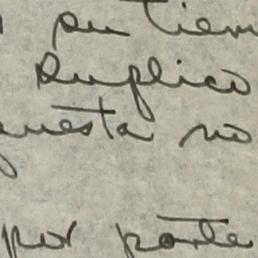 su tiem
suplico
uesta no
por parte